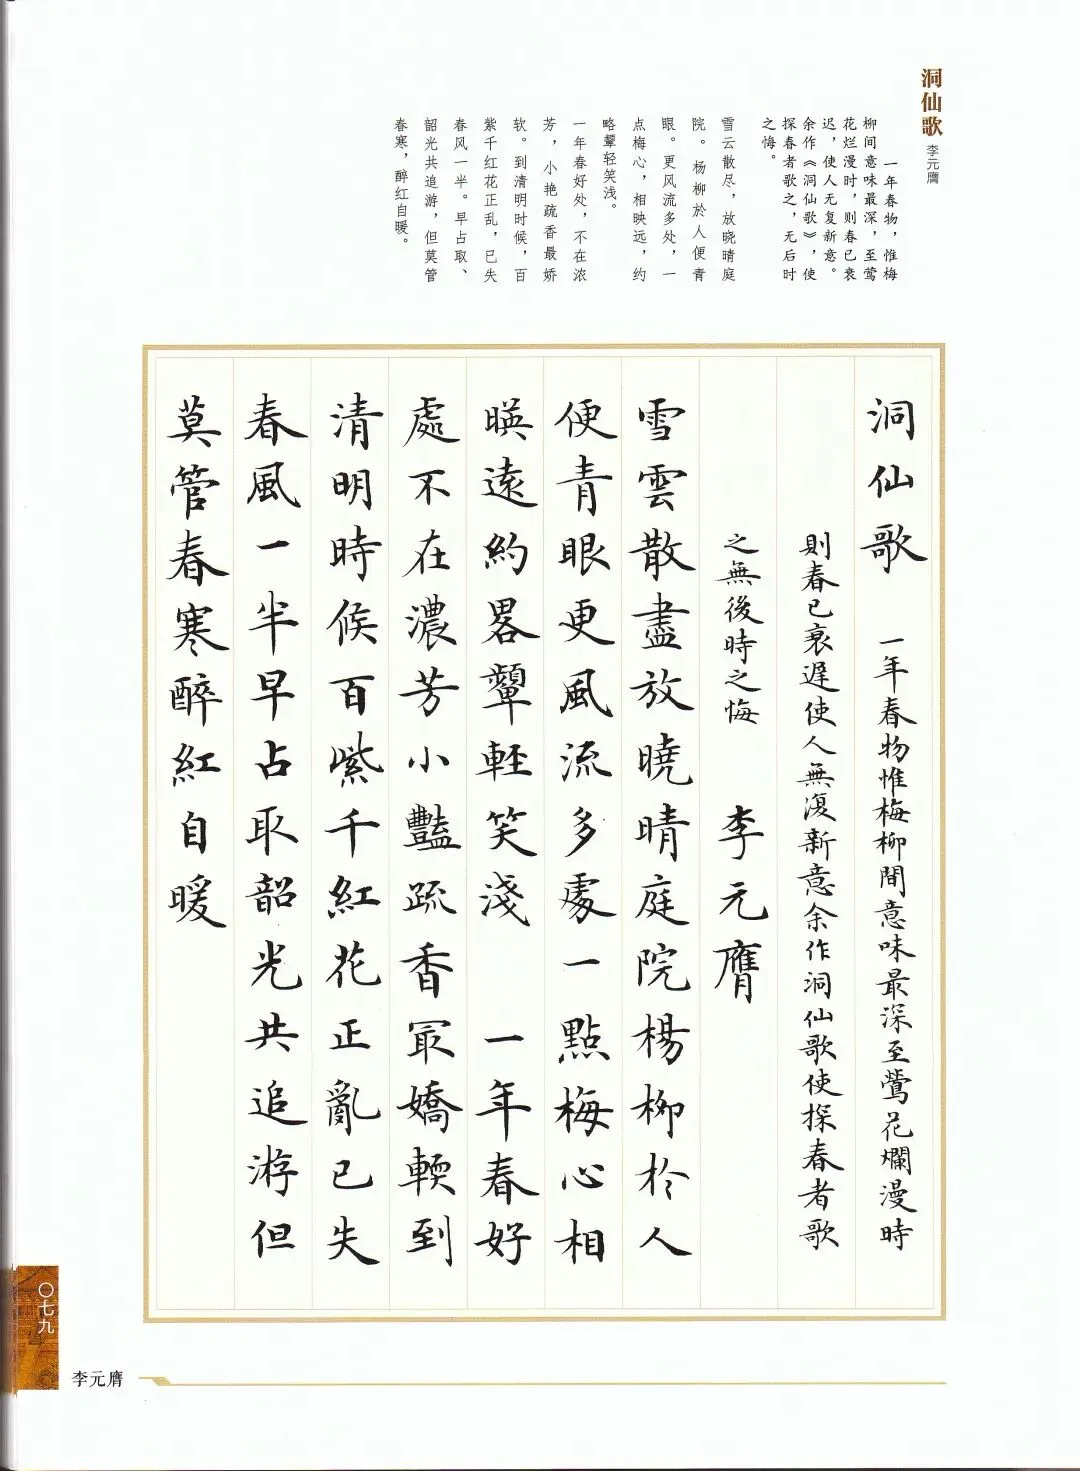 洞仙歌 李元膺
一年春物，惟梅
柳间意味最深，至莺
花烂漫时，则春已衰
迟，使人无复新意。
余作《洞仙歌》，使
探春者歌之，无后时
之悔。
雪云散尽，放晓晴庭
院。杨柳於人便青
眼。更风流多处，一
点梅心，相映远，约
略颦轻笑浅。
一年春好处，不在浓
芳，小艳疏香最娇
软。到清明时候，百
紫千红花正乱，已失
春风一半。早占取、
韶光共追游，但莫管
春寒，醉红自暖。
洞仙歌 一年春物惟梅柳間意味最深至鶯花爛漫時
則春已衰遲使人無復新意余作洞仙歌使探春者歌
之無後時之悔 李元膺
雪雲散盡放曉晴庭院楊柳於人
便青眼更風流多處一點梅心相
暎遠約畧顰輕笑淺 一年春好
處不在濃芳小豔疏香冣嬌輭到
清明時候百紫千紅花正亂已失
春風一半早占取韶光共追游但
莫管春寒醉紅自暖
〇七九
李元膺